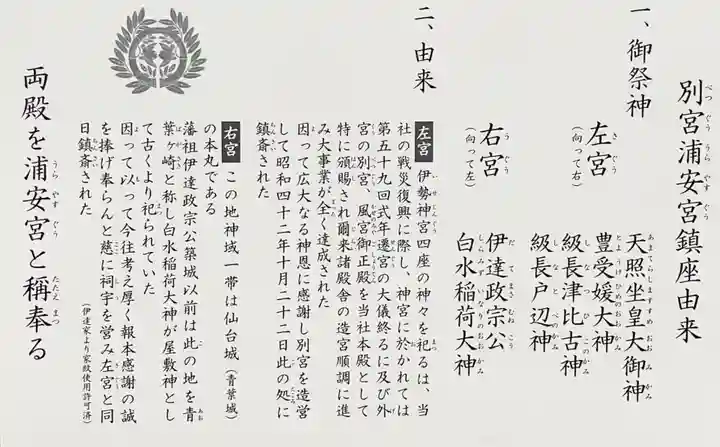 別宮浦安宮鎮座由来
一、御祭神
左宮
(向って右)
天照坐皇大御神
豊受媛大神
級長津比古神
級長戸辺神
右宮
(向って左)
伊達政宗公
白水稲荷大神
二、由来
左宮 伊勢神宮四座の神々を祀るは、当
社の戦災復興に際し、神宮に於かれては
第五十九回式年遷宮の大儀終るに及び外
宮の別宮、風宮御正殿を当社本殿として
特に頒賜され爾来諸殿舎の造宮順調に進
み大事業が全く達成された
因って広大なる神恩に感謝し別宮を造営
して昭和四十二年十月二十二日此の処に
鎮斎された
右宮 この地神域一帯は仙台城(青葉城)
の本丸である
藩祖伊達政宗公築城以前は此の地を青
葉ヶ崎と称し白水稲荷大神が屋敷神とし
て古くより祀られていた
因って以って今往考え厚く報本感謝の誠
を捧げ奉らんと慈に祠宇を営み左宮と同
日鎮斎された
(伊達家より家紋使用許可済)
両殿を浦安宮と稱奉る